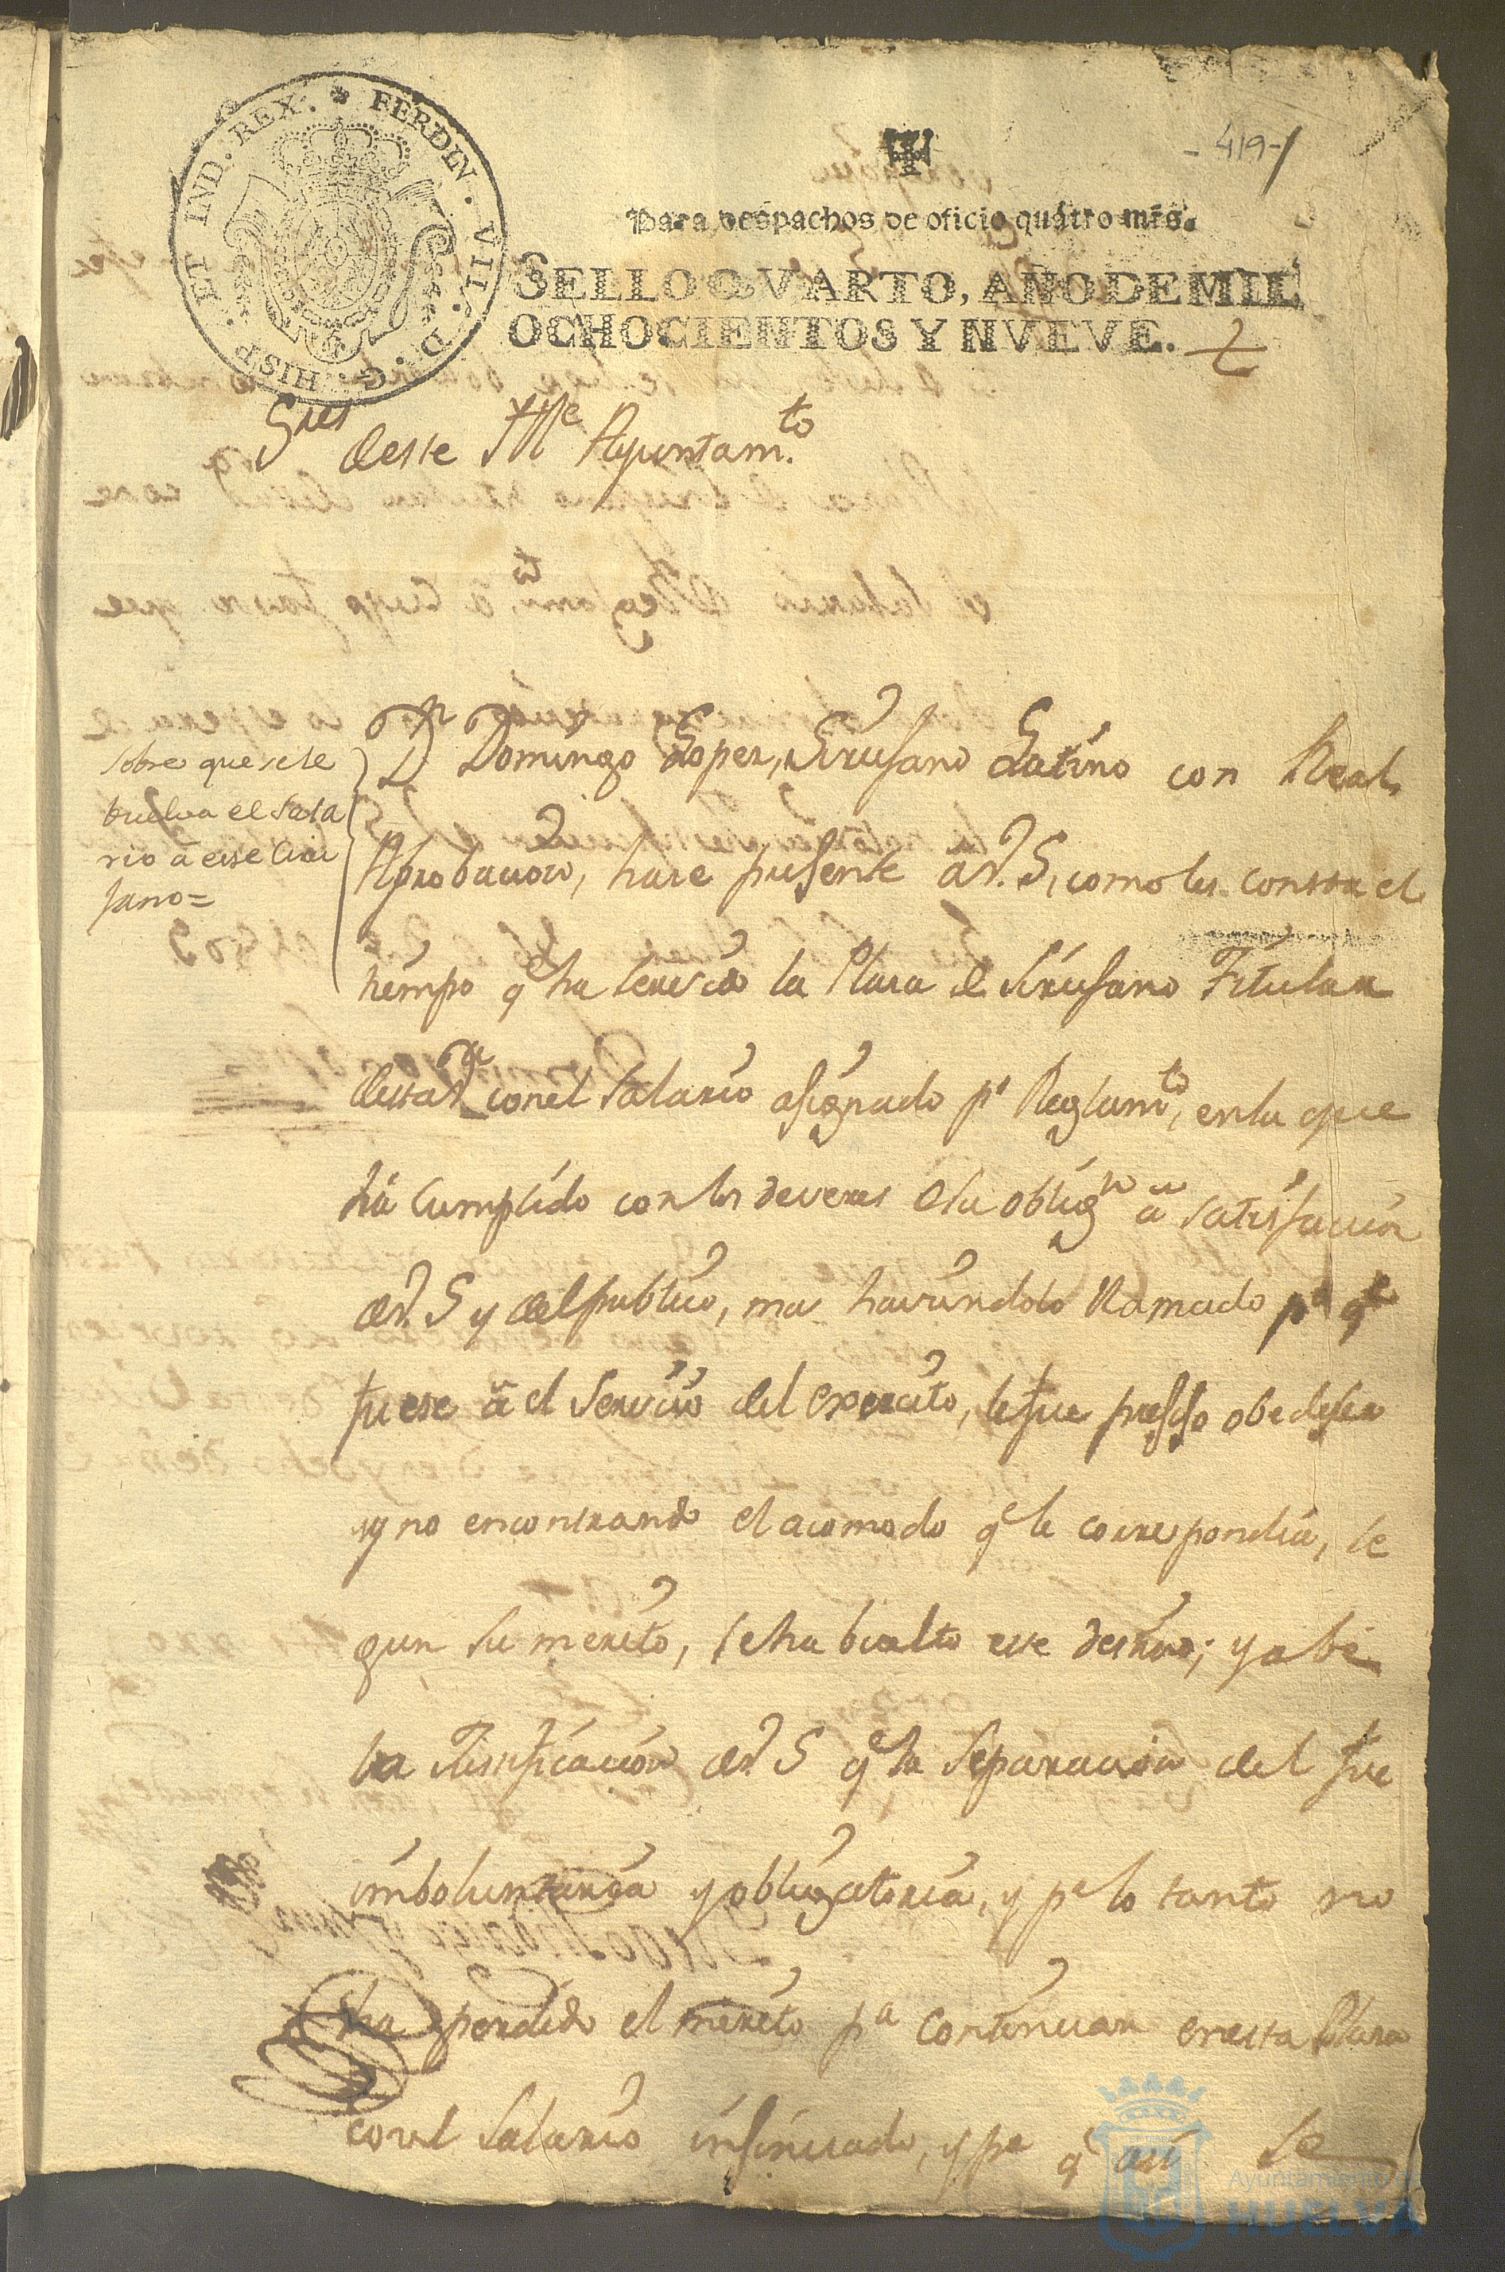 FERDIN. VII. D. G. HISP. ET IND. REX.
- 419 -
Para despachos de oficio quatro mrs.
SELLO QVARTO, AÑO DE MIL
OCHOCIENTOS Y NVEVE.
Sres deste Ille Ayuntamto
sobre que se le
buelva el sala
rio á este Ciru
jano=
Dn Domingo Lopez, Sirujano Latino con Real
Aprobacion, hace presente á V. S, como les consta el
tiempo qe ha servido la Plaza de Sirujano Titular
desta Va con el salario asignado pr Reglamto, en la que
há cumplido con los deveres de su obligon á satisfacion
de V. S y del publico, mas haviendolo llamado pa qe
fuese á el servicio del exercito, le fue presiso obedeser
y no encontrando el acomodo qe le correspondia, se
gun su merito, se ha buelto a este destino; y a be
la Justificacion de V. S qe la separacion del fue
imboluntaria y obligatoria, y pr lo tanto no
ha perdido el merito pa continuar en esta Plaza
con el salario insinuado, y pa qe asi se
Ayuntamiento de
HUELVA